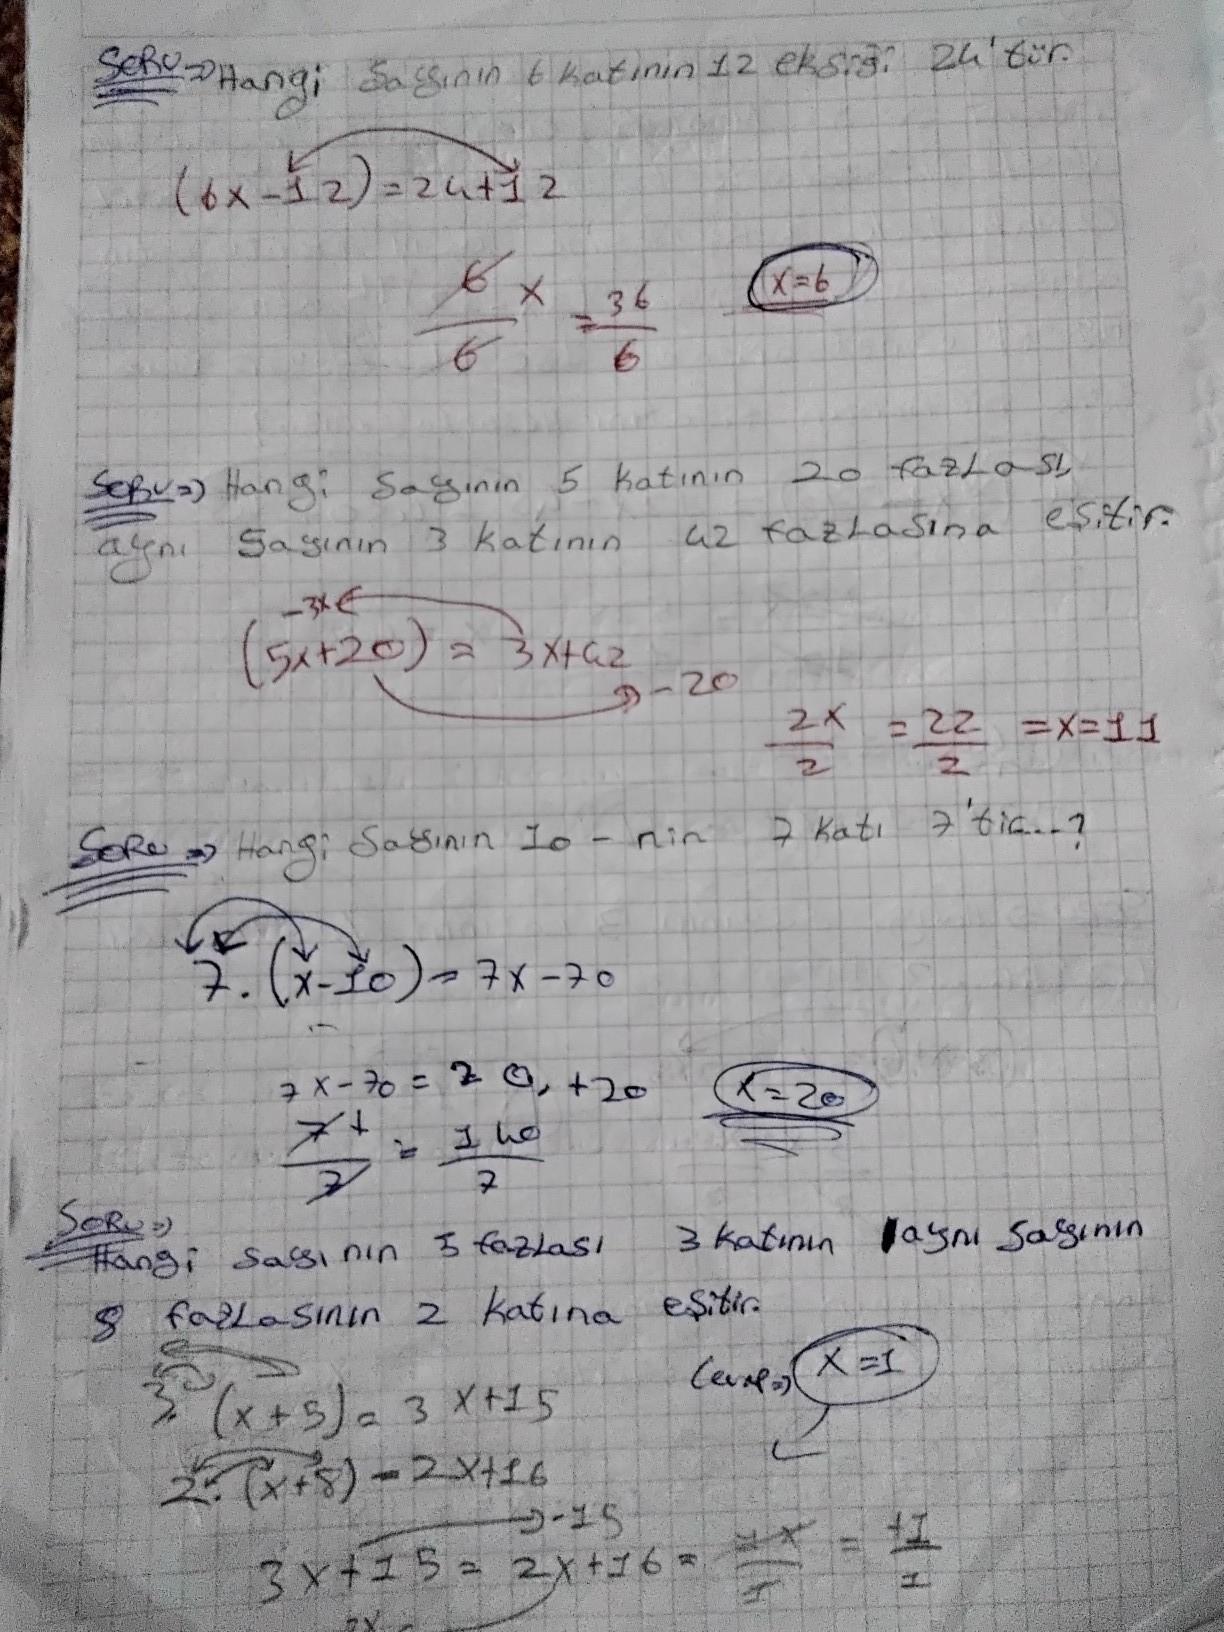 SORU => Hangi Sayının 6 katının 12 eksiği 24'tür.
(6x-12)=24+12
6/6 x = 36/6 x=6
SORU => Hangi Sayının 5 katının 20 fazLası,
aynı Sayının 3 katının 42 fazLasına eşitir.
-3x
(5x+20) = 3x+42
-20
2x/2 = 22/2 = x=11
SORU => Hangi Sayının 10 - nin 7 katı 7'tir...?
7.(x-10)=7x-70
7x-70= 20, +20 x=20
/7 = 140/7
SORU =>
Hangi sayının 5 fazlası 3 katının aynı sayının
8 fazLasının 2 katına eşitir.
Cevap => x=1
3. (x+5)= 3x+15
2. (x+8) = 2x+16
-15
3x+15= 2x+16 = x/1 = +1/1